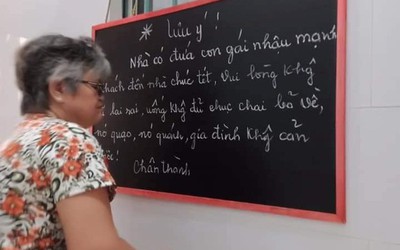 * Lưu ý!!
Nhà có đứa con gái nhậu mạnh
khách đến nhà chúc tết, vui lòng khg
lai sai, uống khg đủ chục chai bỏ về,
nó quạo, nó quánh, gia đình khg cản
Chân thành